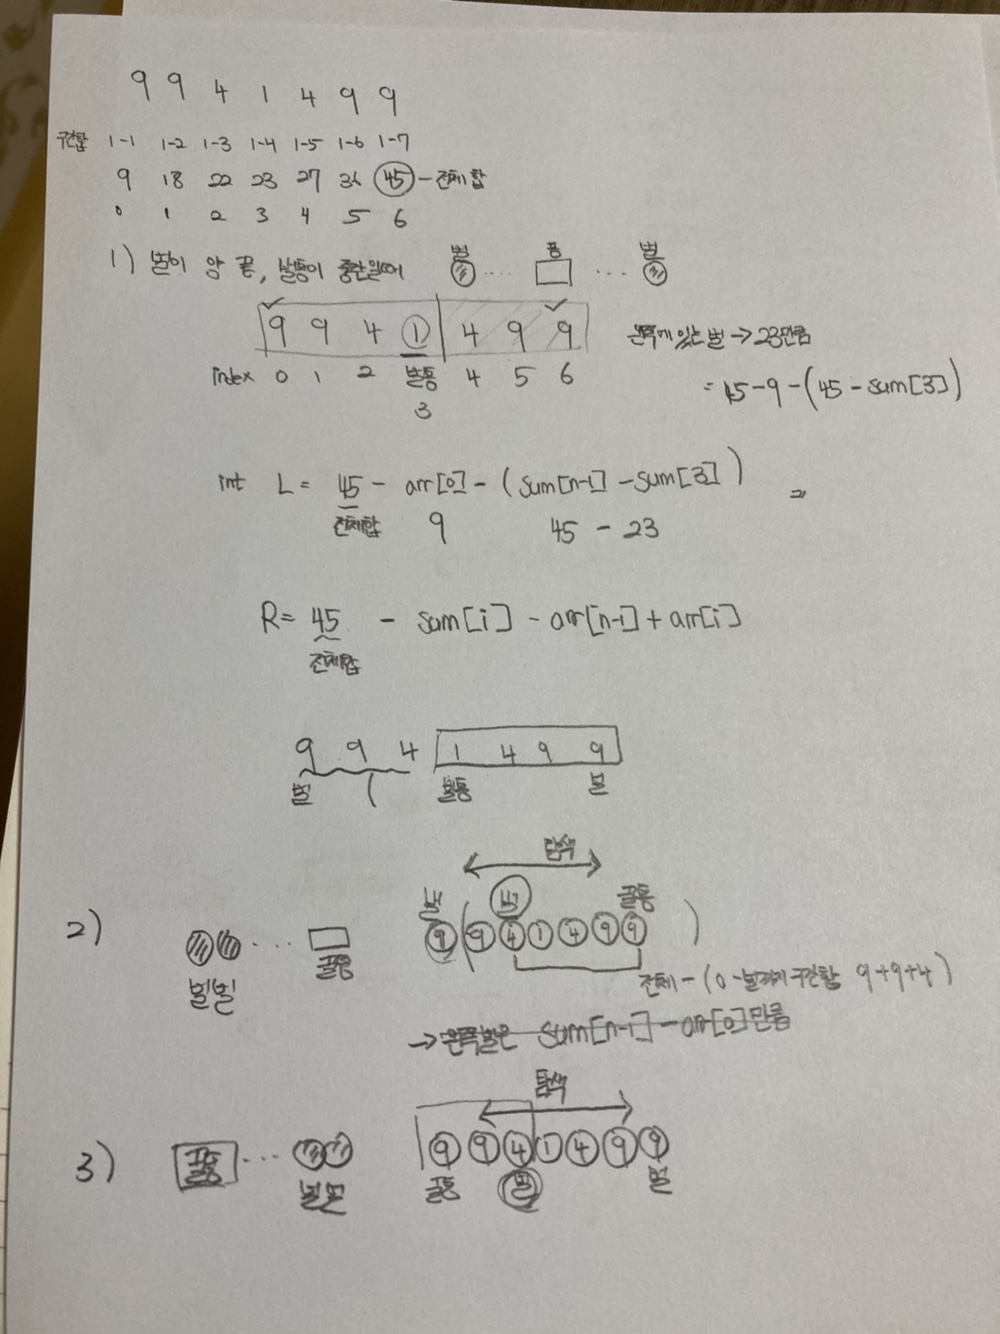 9 9 4 1 4 9 9
구간합 1-1 1-2 1-3 1-4 1-5 1-6 1-7
9 18 22 23 27 36 45 - 전체 합
0 1 2 3 4 5 6
1) 벌이 양 끝, 벌통이 중간일때 벌 ... 통 ... 벌
9 9 4 1 4 9 9 왼쪽에 있는 벌 → 23만큼
index 0 1 2 벌통 4 5 6
3
= 45-9-(45-sum[3])
int L = 45 - arr[0] - (sum[n-1] - sum[3]) =
전체합 9 45 - 23
R = 45 - sum[i] - arr[n-1] + arr[i]
전체합
9 9 4 1 4 9 9
벌 벌통 벌
탐색
벌 벌 꿀통
2) ... 9 (9 4 1 4 9 9 )
벌벌 꿀통
전체 - (0-벌까지 구간합 9+9+4)
→ 왼쪽벌은 sum[n-1] - arr[0]만큼
탐색
3) 꿀통 ... 9 9 4 1 4 9 9
벌벌 꿀통 벌 벌